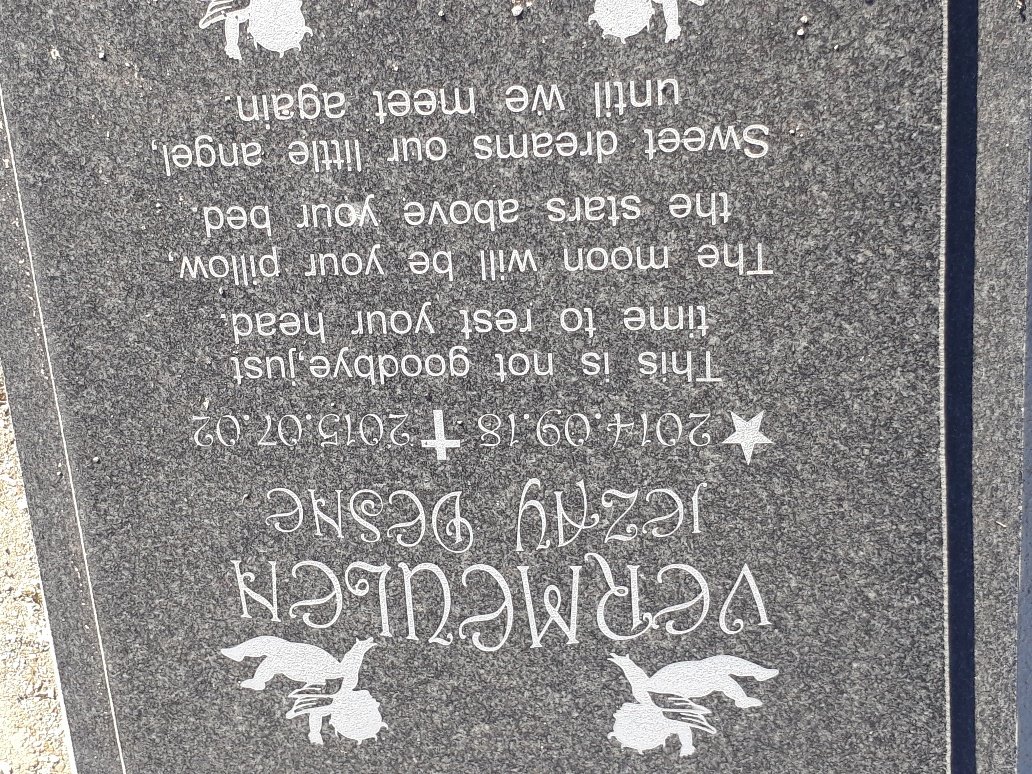 VERMEULEN
JEZAY DESNE
2014.09.18 2015.07.02
This is not goodbye,just
time to rest your head.
The moon will be your pillow,
the stars above your bed.
Sweet dreams our little angel,
until we meet again.